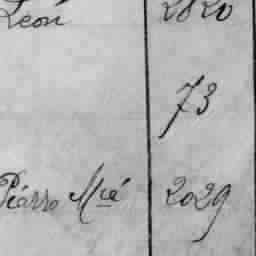 León 2820
73
Piárro M^cé 2029